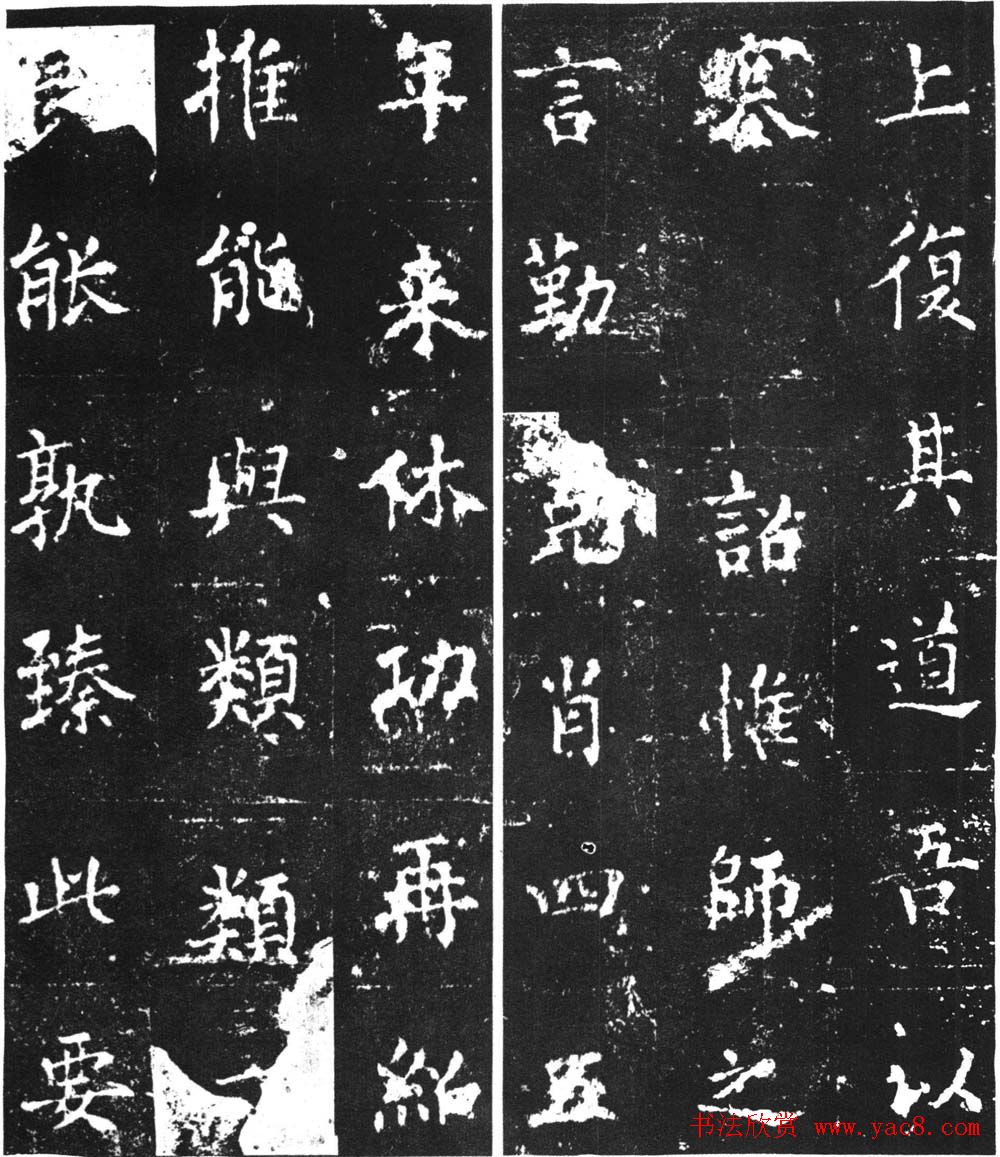 上復其道吾以
塞詔惟師之
言勤克肖四五
年来休功再紹
推能與類類
能孰臻此要
书法欣赏 www.yac8.com